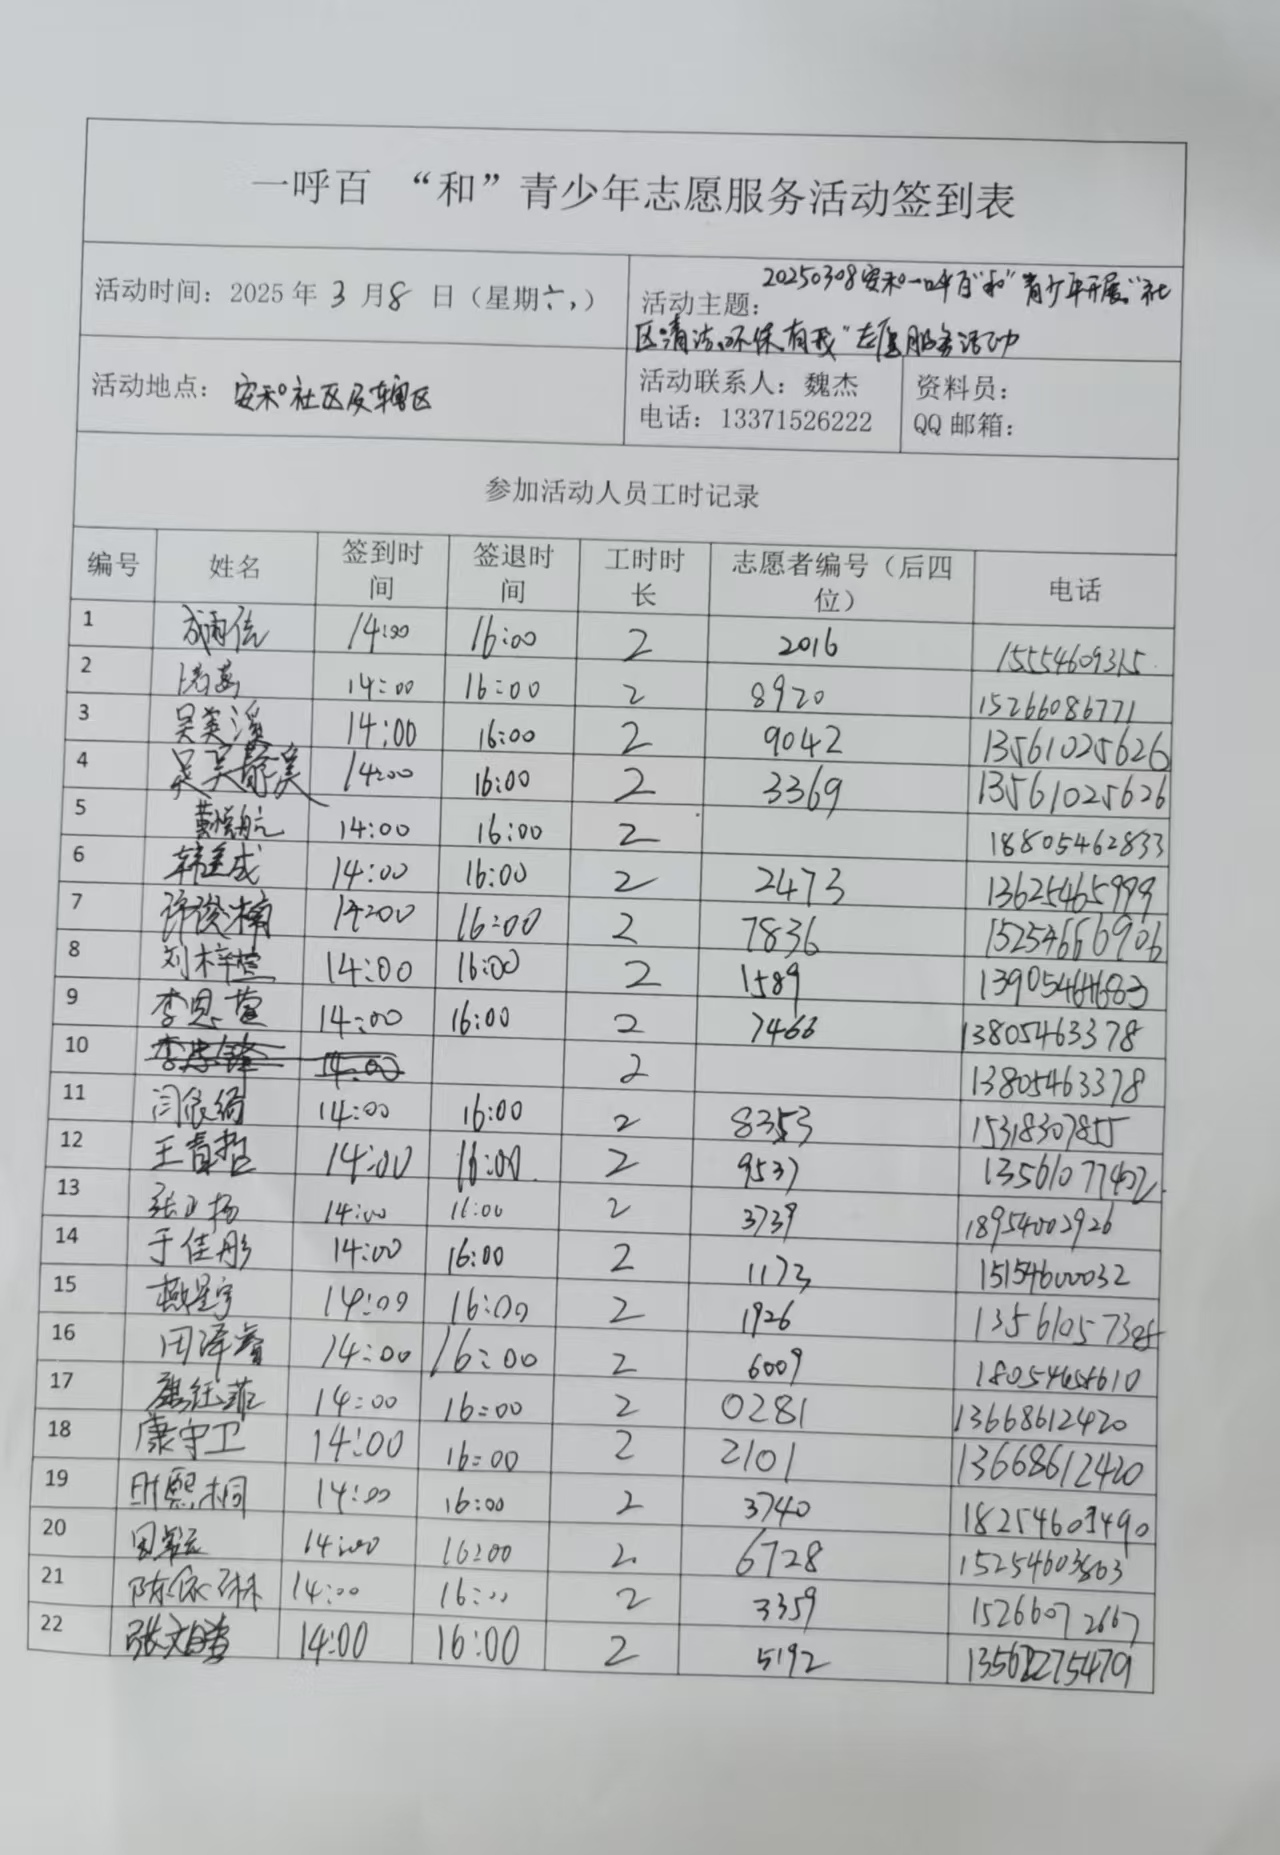 一呼百 “和”青少年志愿服务活动签到表
活动时间：2025年 3 月 8 日（星期六）
活动主题：20250308安和一呼百“和”青少年开展“社
区清洁，环保有我”志愿服务活动
活动地点：安和社区及辖区
活动联系人：魏杰
电话：13371526222
资料员：
QQ邮箱：
参加活动人员工时记录
编号 姓名 签到时间 签退时间 工时时长 志愿者编号（后四位） 电话
1 14:00 16:00 2 2016 15554609315
2 14:00 16:00 2 8920 15266086771
3 吴美溪 14:00 16:00 2 9042 13561025626
4 14:00 16:00 2 3369 13561025626
5 14:00 16:00 2 18805462833
6 14:00 16:00 2 2473 13625465999
7 许俊楠 14:00 16:00 2 7836 15254666906
8 刘梓萱 14:00 16:00 2 1589
9 李恩萱 14:00 16:00 2 7466 13805463378
10 14:00 2 13805463378
11 闫依绮 14:00 16:00 2 8353 15318307855
12 王青哲 14:00 16:00 2 9537 13561077402
13 张正扬 14:00 16:00 2 3739 18954002926
14 于佳彤 14:00 16:00 2 1173 15154600032
15 燕星宇 14:00 16:00 2 1926
16 田泽睿 14:00 16:00 2 6009
17 魏钰菲 14:00 16:00 2 0281 13668612420
18 康守卫 14:00 16:00 2 2101 13668612420
19 田熙桐 14:00 16:00 2 3740
20 14:00 16:00 2 6728 15254603803
21 陈依琳 14:00 16:00 2 3359 15266072667
22 张文腾 14:00 16:00 2 5192